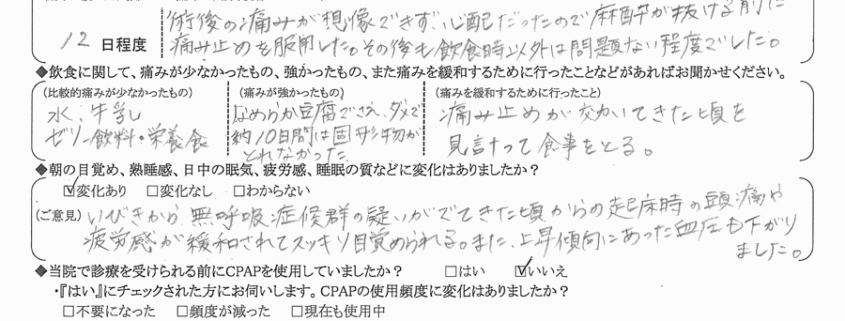 術後の痛みが想像できず、心配だったので麻酔が抜ける前に
12 日程度
痛み止めを服用した。その後も飲食時以外は問題ない程度でした。
◆飲食に関して、痛みが少なかったもの、強かったもの、また痛みを緩和するために行ったことなどがあればお聞かせください。
(比較的痛みが少なかったもの)
水、牛乳
ゼリー飲料・栄養食
(痛みが強かったもの)
なめらか豆腐でさえ、ダメで
約10日間は固形物が
とれなかった
(痛みを緩和するために行ったこと)
痛み止めが効いてきた頃を
見計って食事をとる。
◆朝の目覚め、熟睡感、日中の眠気、疲労感、睡眠の質などに変化はありましたか?
☑変化あり □変化なし □わからない
(ご意見) いびきから、無呼吸症候群の疑いがでてきた頃からの起床時の頭痛や
疲労感が緩和されてスッキリ目覚められる。また、上昇傾向にあった血圧も下がり
ました。
◆当院で診療を受けられる前にCPAPを使用していましたか? □はい ☑いいえ
・『はい』にチェックされた方にお伺いします。CPAPの使用頻度に変化はありましたか?
□不要になった □頻度が減った □現在も使用中